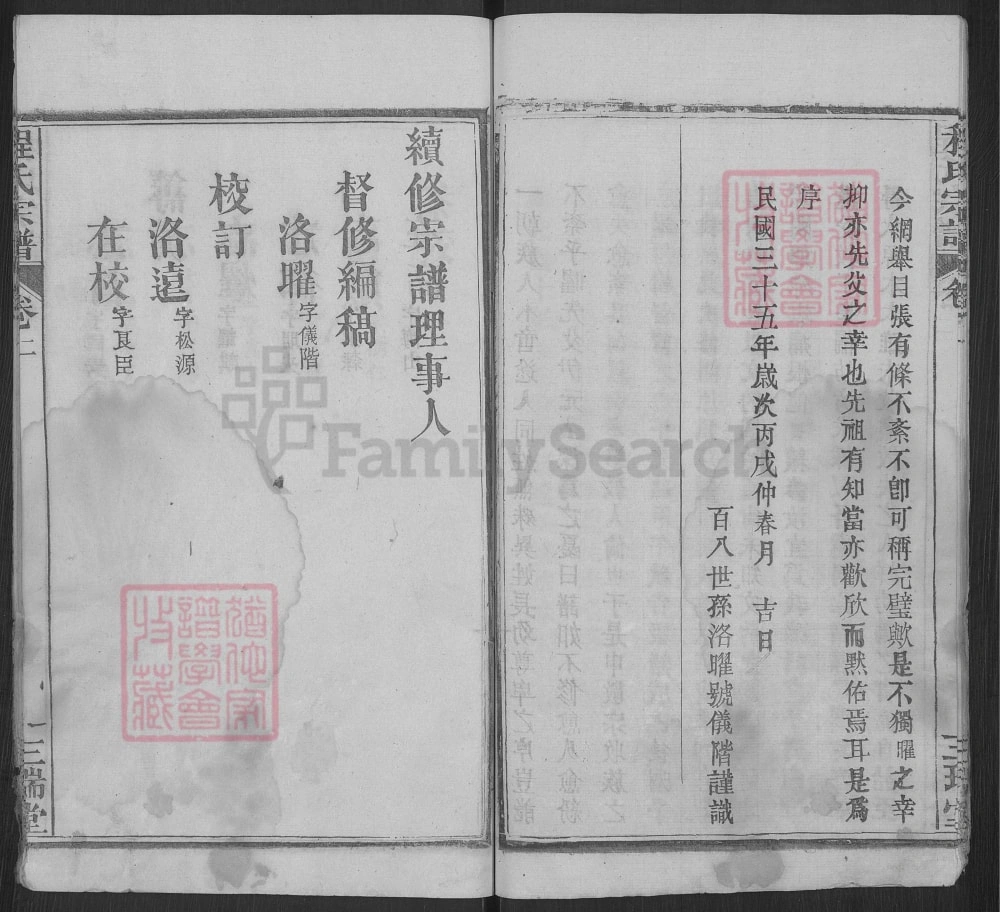 程氏宗譜 卷
三瑞堂
今綱舉目張有條不紊不卽可稱完璧歟是不獨曜之幸
抑亦先父之幸也先祖有知當亦歡欣而默佑焉耳是爲
序
民國三十五年歲次丙戌仲春月 吉日
百八世孫洛曜號儀階謹識
續修宗譜理事人
督修編稿
洛曜字儀階
校訂
洛遠字松源
在校字良臣
程氏宗譜 卷二
三瑞堂
譜學會
收藏
譜學會
收藏
FamilySearch